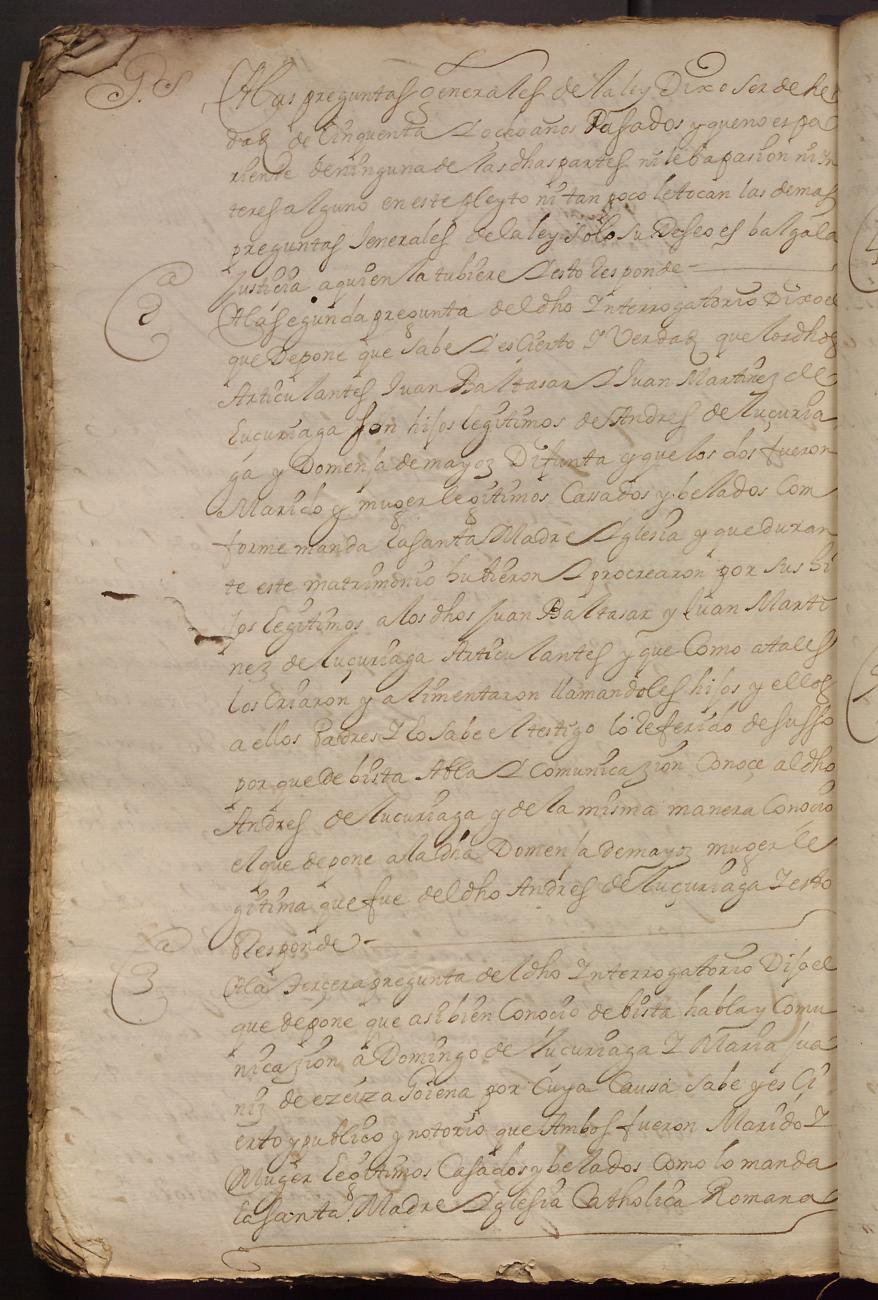 G.s
A las preguntas Generales de la ley Dixo ser de he
dad de Cinquenta y ocho años Pasados y que no es pa
riente de ninguna de las dhas partes ni le ba pasion ni yn
teres alguno en este pleyto ni tan poco le tocan las demas
preguntas Jenerales de la ley solo su Deseo es balga la
Justicia a quien la tubiere y esto Responde
2a
A la segunda pregunta del dho Interrogatorio Dixo el
que Depone que sabe y es Cierto Y Verdad que los dhos
Articulantes Juan Baltasar y Juan Martinez de
Luçuriaga son hijos legitimos de Andres de luçuria
ga y Domenja de mayoz Difunta y que los dos fueron
Marido y muger legitimos Cassados y belados Com
forme manda la santa Madre Yglesia y que duran
te este matrimonio hubieron y procrearon por sus hi
jos legitimos a los dhos Juan Baltasar y Juan Marti
nez de luçuriaga Articulantes y que Como a tales
los Criaron y alimentaron llamandoles hijos y ellos
a ellos Padres Y lo sabe el testigo lo Referido de susso
por que de bista Abla y Comunicazion Conoçe al dho
Andres de lucuriaga y de la misma manera Conocio
el que depone a la dha Domenja de mayoz muger le
gitima que fue del dho Andres de luçuriaga Y esto
Responde
3a
A la Terçera pregunta del dho Interrogatorio Dijo el
que depone que asi bien Conocio de bista habla y Comu
nicazion a Domingo de lucuriaga Y Maria Jua
niz de ezeiza Goiena por Cuya Causa sabe y es Ci
erto y publico y notorio que Ambos fueron Marido Y
Muger legitimos Casados y belados Como lo manda
la santa Madre Yglesia Catholica Romana